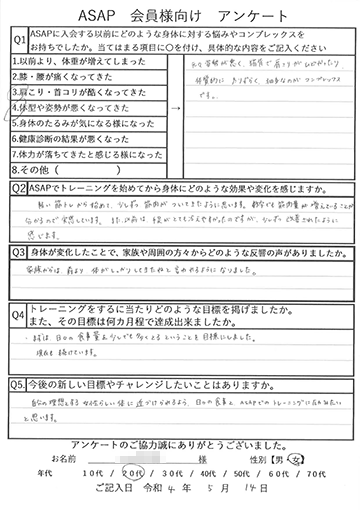 ASAP 会員様向け アンケート
Q1 ASAPに入会する以前にどのような身体に対する悩みやコンプレックスを
お持ちでしたか。当てはまる項目に○を付け、具体的な内容をご記入ください
1.以前より、体重が増えてしまった
2.膝・腰が痛くなってきた
3.肩こり・首コリが酷くなってきた
4.体型や姿勢が悪くなってきた
5.身体のたるみが気になる様になった
6.健康診断の結果が悪くなった
7.体力が落ちてきたと感じる様になった
8.その他（ ）
→
です。
Q2 ASAPでトレーニングを始めてから身体にどのような効果や変化を感じますか。
軽い筋トレから始めて、少しずつ筋肉がついてきたように思います。
感じます。
Q3 身体が変化したことで、家族や周囲の方々からどのような反響の声がありましたか。
家族からは、前より体がしっかりしてきたねと言われるようになりました。
Q4 トレーニングをするに当たりどのような目標を掲げましたか。
また、その目標は何カ月程で達成出来ましたか。
日々の食事量を少しでも多くとるということを目標にしました。
現在も続けています。
Q5. 今後の新しい目標やチャレンジしたいことはありますか。
自分の理想とする女性らしい体に近づけられるよう、日々の食事とASAPでのトレーニングに
と思います。
アンケートのご協力誠にありがとうございました。
お名前 様 性別【男・女】
年代 10代 / 20代 / 30代 / 40代 / 50代 / 60代 / 70代
ご記入日 令和 4 年 5 月 14 日